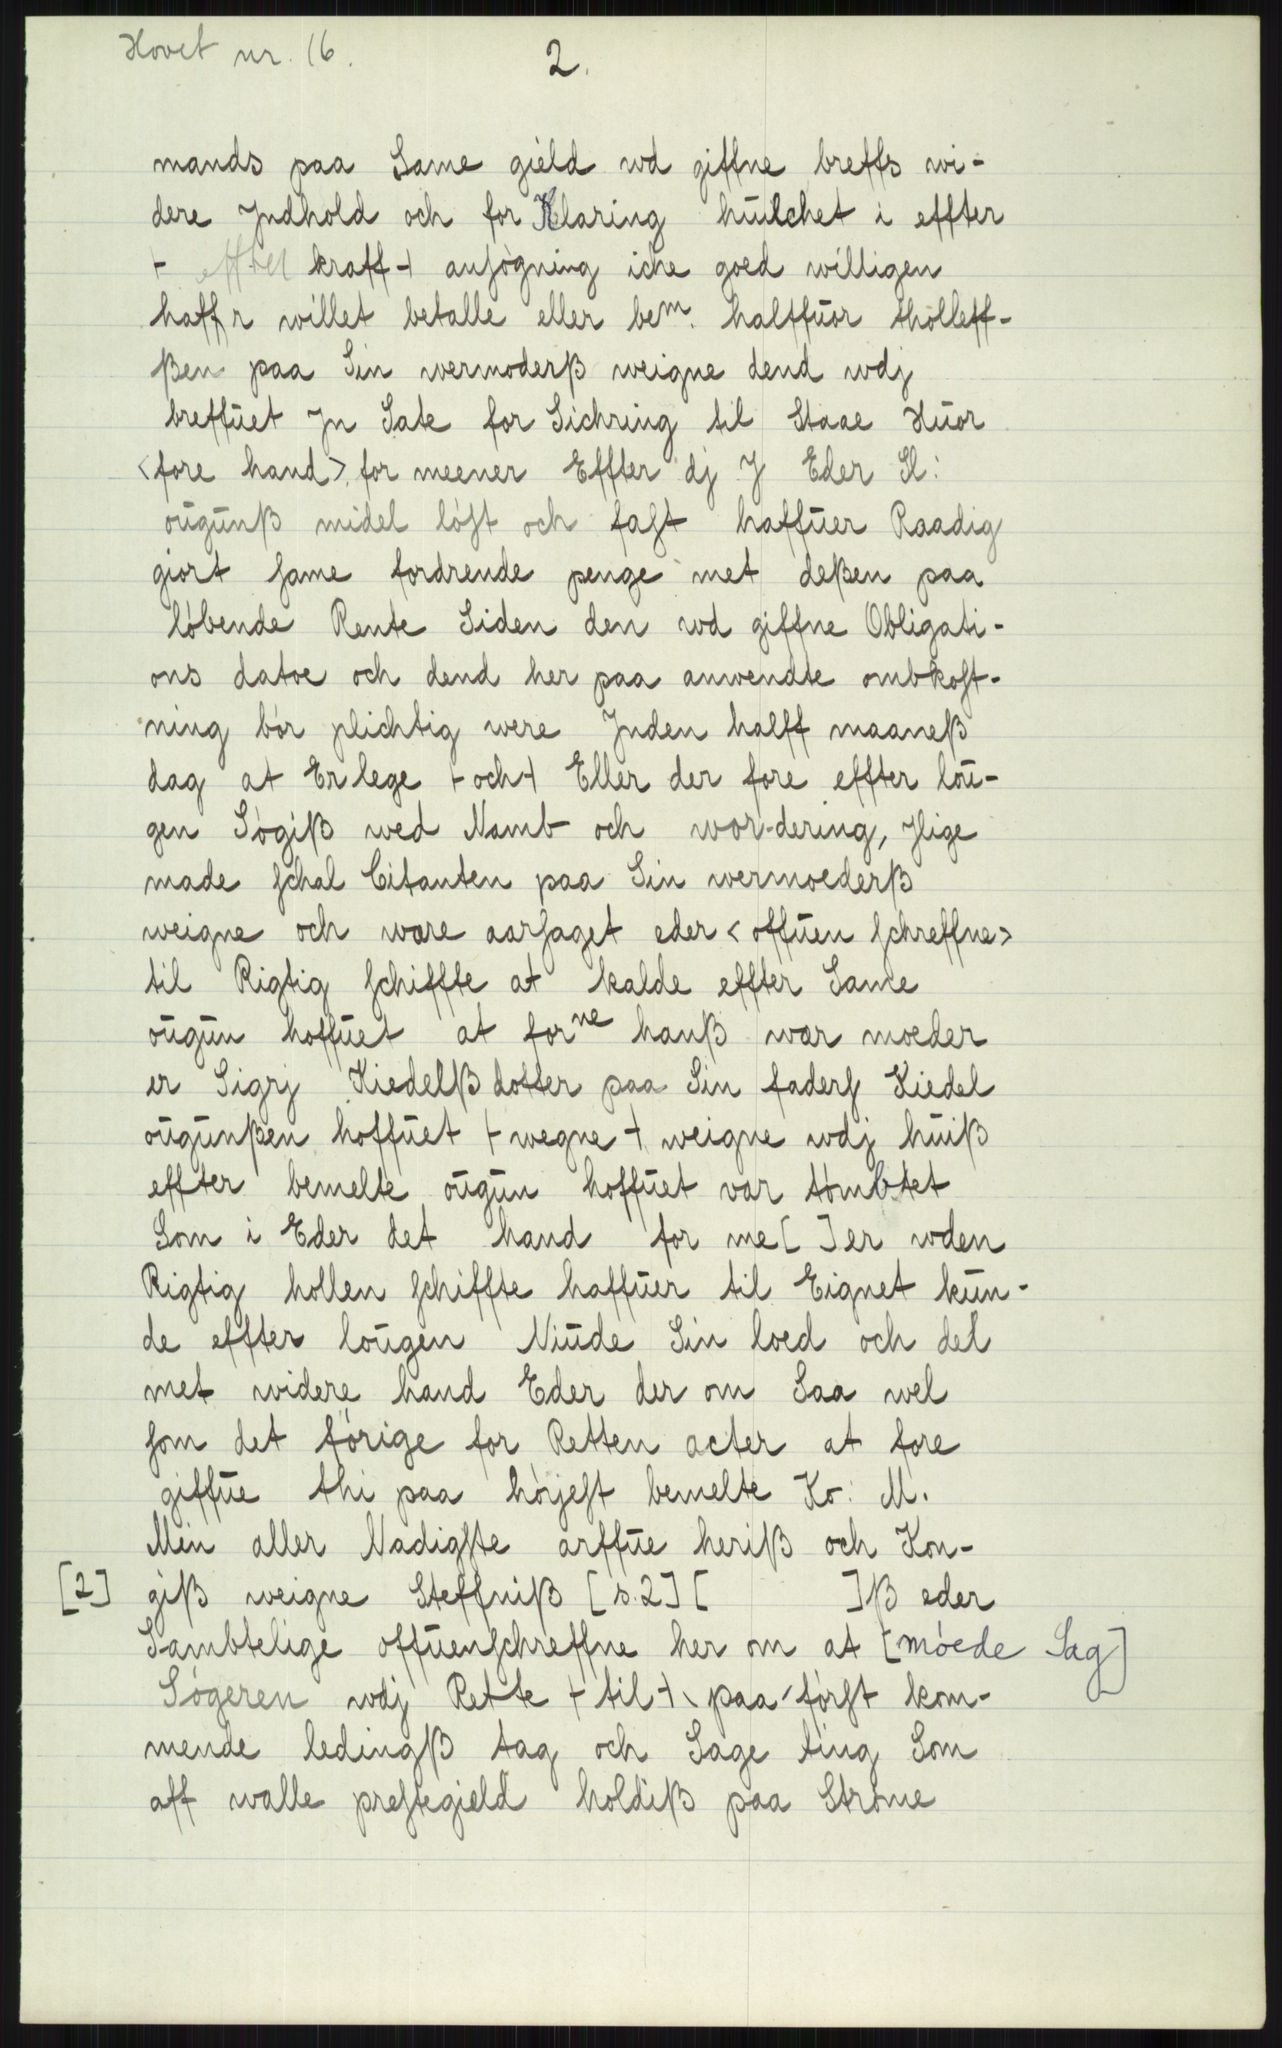 Hovet nr. 16.
2.
mands paa Same gield wd giffne breffs wi-
dere Jndhold och for Klaring huilchet i effter
⊢ effter kraff ⊣ ansögning iche goed willigen
haffr willet betalle eller bem. halffuor thölleff-
ßen paa Sin wermoderß weigne dend wdj
breffuet Jn Sate for Sichring til Staae Huor
<fore hand> for meener Effter dj J Eder Sl:
ougunß midel löst och fast haffuer Raadig
giort same fordrende penge met deßen paa
löbende Rente Siden den wd giffne Obligati-
ons datoe och dend her paa anwendte ombkost-
ning bör plichtig were Jnden halff maaneß
dag at Erlege ⊢ och ⊣ Eller der fore effter lou-
gen Sögiß wed Namb och wor-dering, Jlige
made schal Citanten paa Sin wermoederß
weigne och ware aarsaget eder <offuen schreffne>
til Rigtig schiffte at kalde effter Same
ougun hoffuet at forne hanß war moeder
er Sigrj Kiedelß dotter paa Sin faders Kiedel
ougunßen hoffuet ⊢ wegne ⊣ weigne wdj huiß
effter bemelte ougun hoffuet var tömbtet
Som i Eder det hand for me[ ]er wden
Rigtig hollen schiffte haffuer til Eignet kun-
de effter lougen Niude Sin loed och del
met widere hand Eder der om Saa wel
som det förige for Retten acter at fore
giffue thi paa höjest bemelte Ko: M.
Min aller Nadigste arffue heriß och Kon-
[2] giß weigne Steffniß [s.2] [ ]ß eder
Sambtelige offuenschreffne her om at [möede Sag]
Sögeren wdj Rette ⊢ til ⊣ \ paa / först kom-
mende ledingß tag och Sage ting Som
aff walle prestegield holdiß paa Ströme